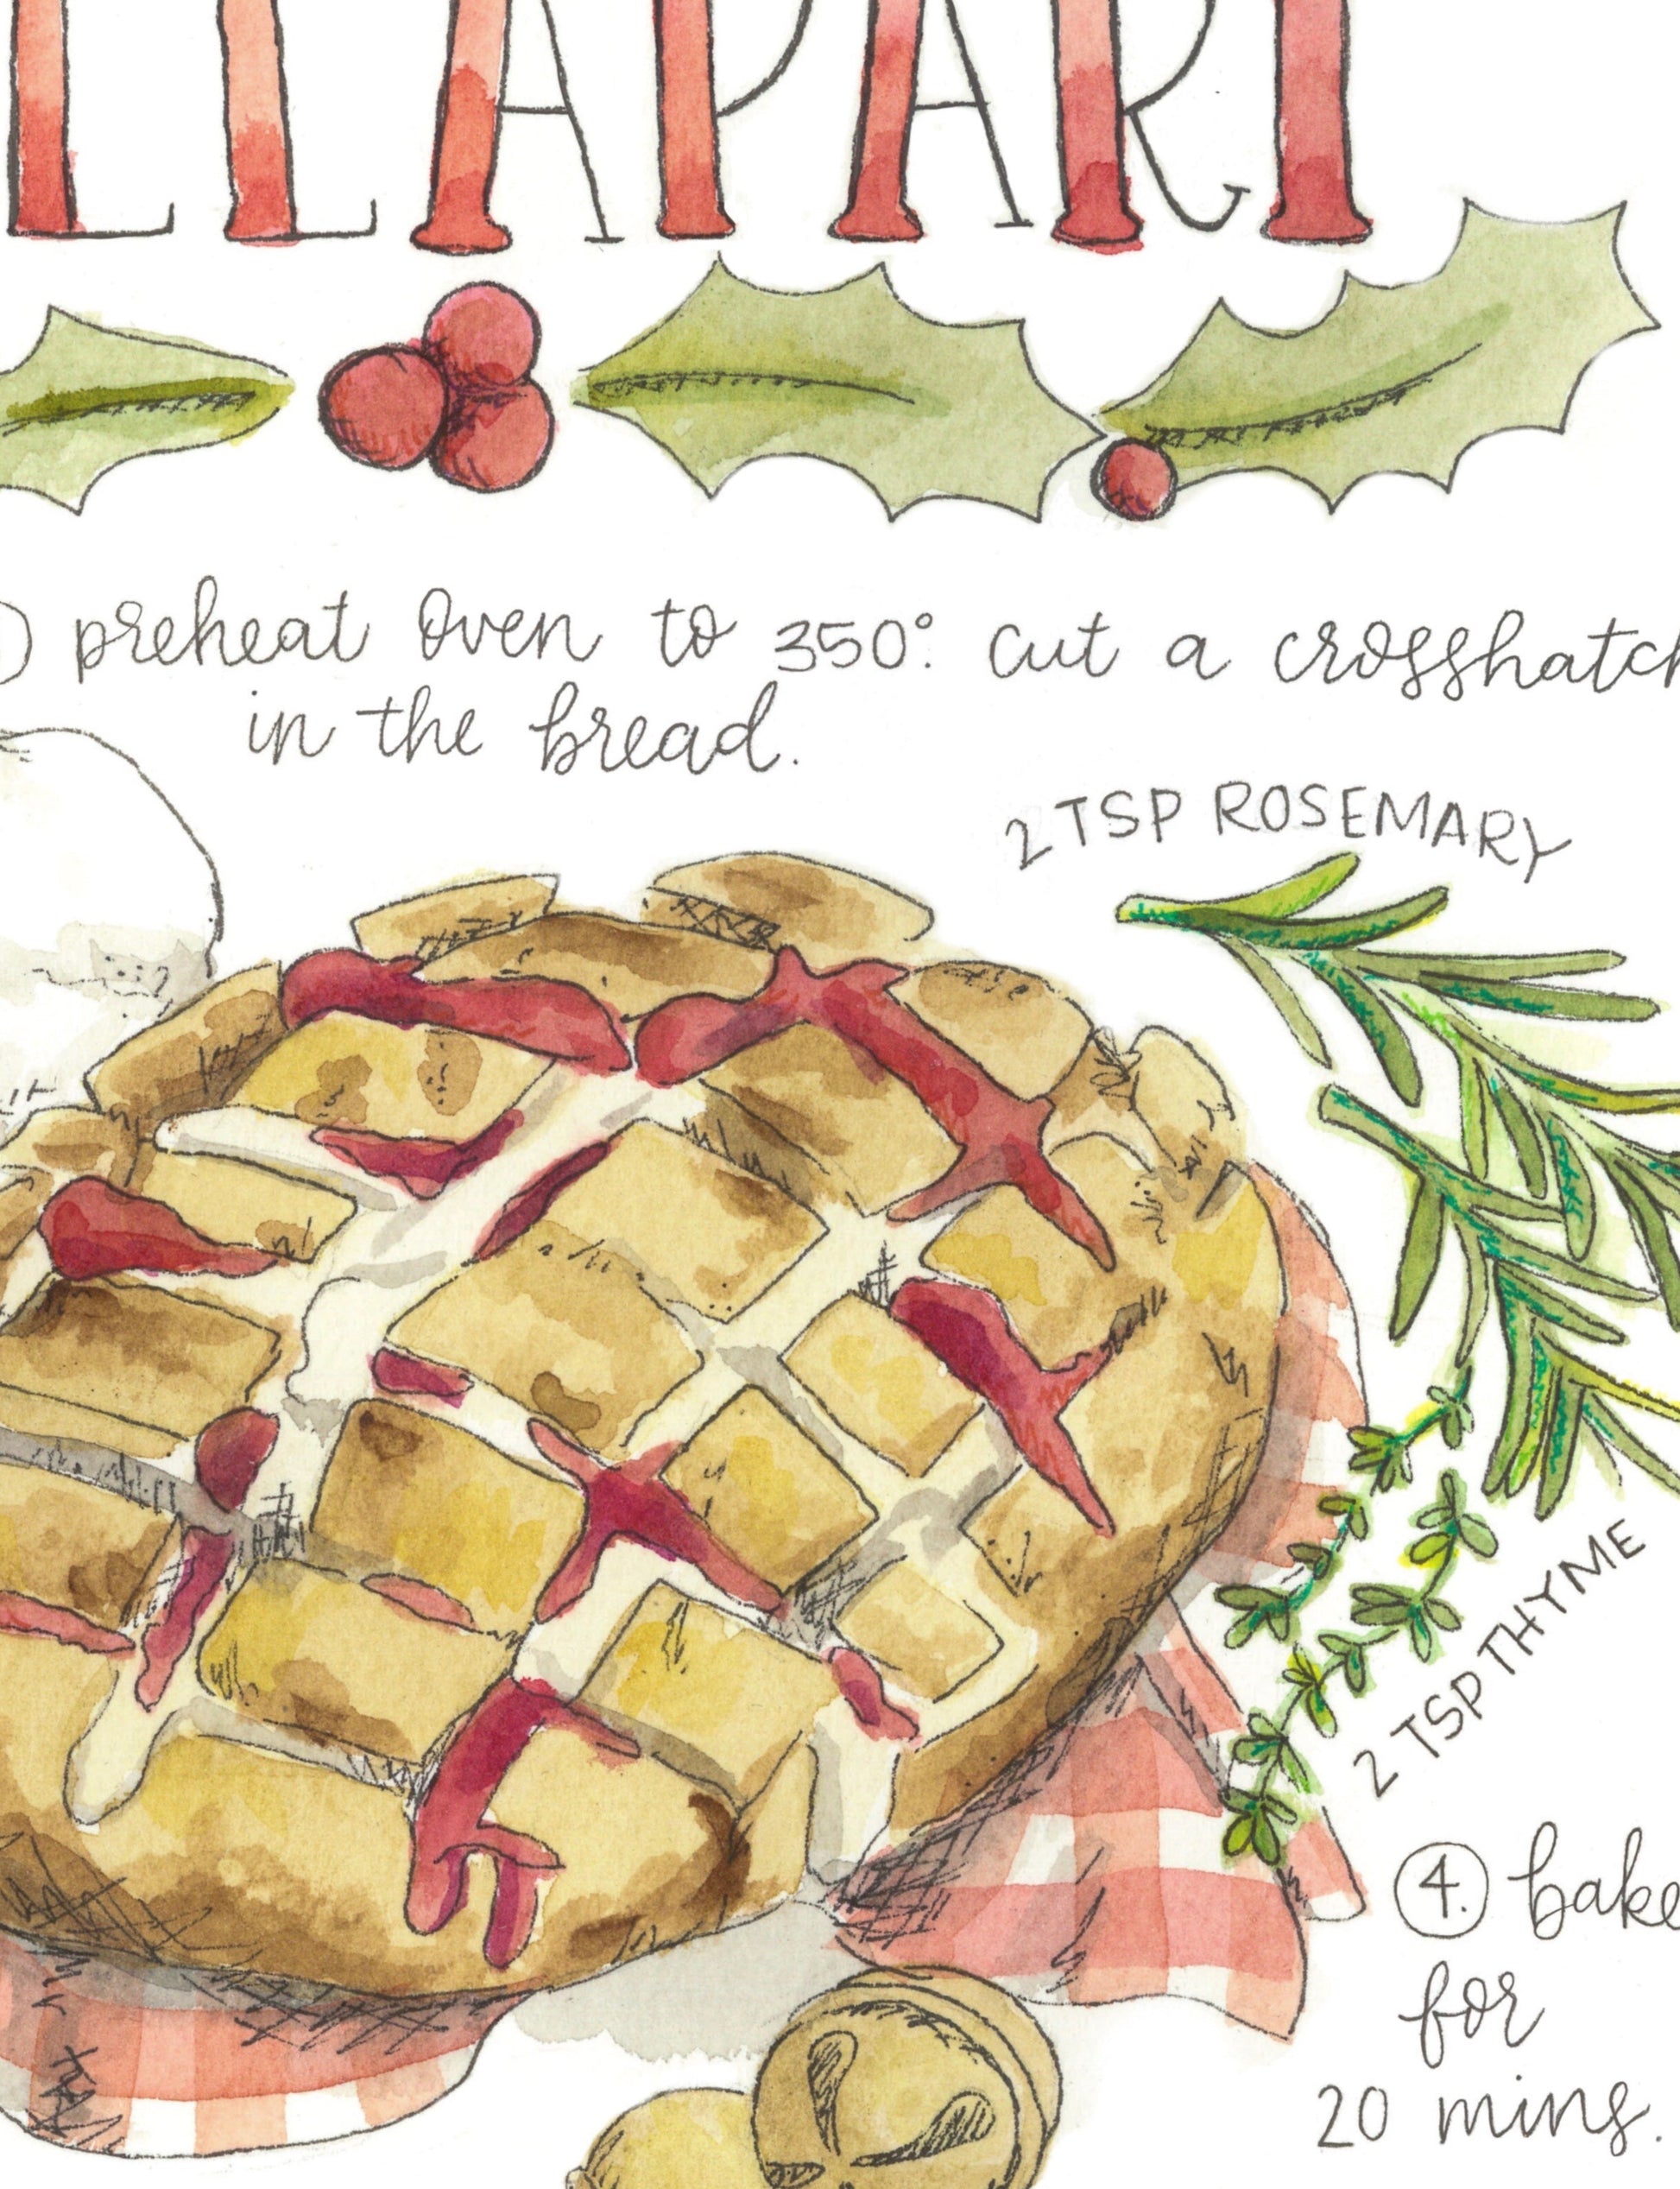 LLAPART
preheat oven to 350°. cut a crosshatch
in the bread.
2 TSP ROSEMARY
2 TSP THYME
4. bake
for
20 mins.